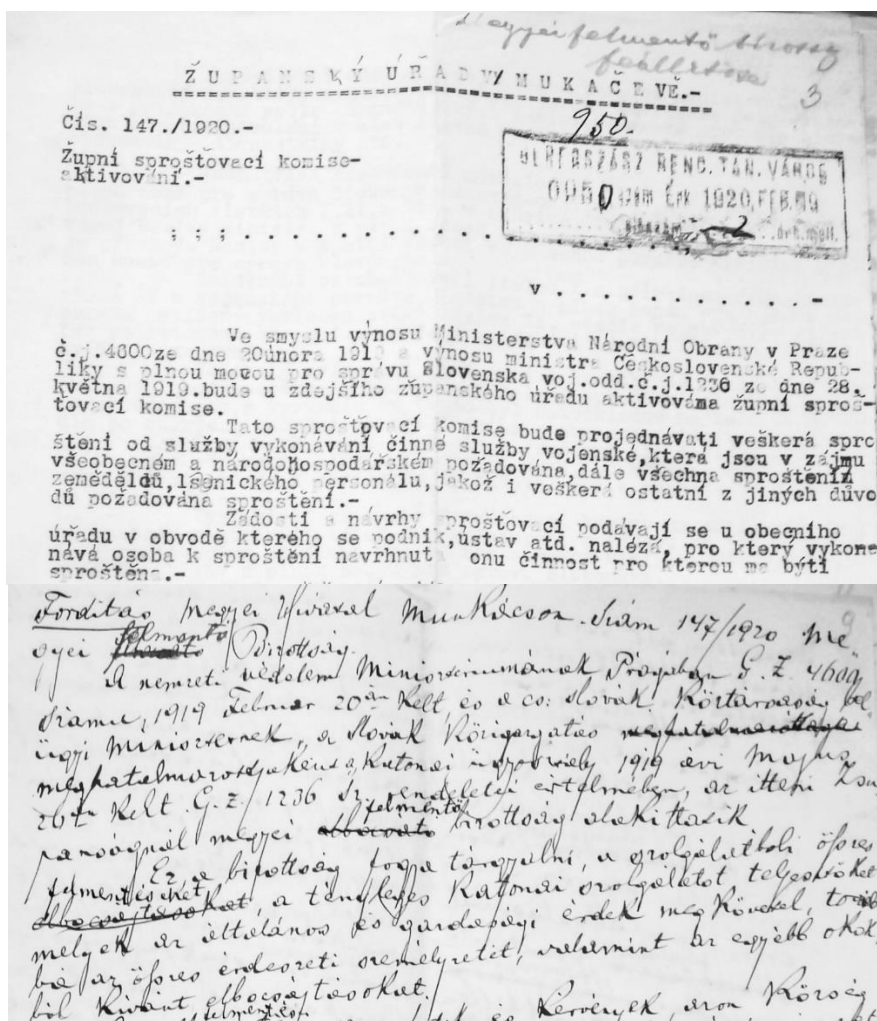 Megyei felmentő bizottság
felállítása
3
ŽUPANSKÝ ÚŘAD V MUKAČEVĚ.-
Čís. 147./1920.-
950.
Župní sprošťovací komise-
aktivování.-
BEREGSZÁSZ REND. TAN. VÁROS
0950 1920.FEB.
; ; ; . . . . . . . . . . . . . . . . . . . .
v . . . . . . . . . . . . -
Ve smyslu výnosu Ministerstva Národní Obrany v Praze
č.j.4600ze dne 20února 1919 a výnosu ministra Českoslovenké Repub-
liky s plnou mocou pro správu Slovenska voj.odd.č.j.1236 ze dne 28.
května 1919.bude u zdejšího županského úřadu aktivována župní sproš-
ťovací komise.
Tato sprošťovací komise bude projednávati veškerá spro
štěni od služby vykonávání činné služby vojenské,která jsou v zájmu
všeobecném a národohospodářském požadována,dále všechna sproštění
zeměděldů,lsenického personálu,jakož i veškerá ostatní z jiných důvo
dů požadována sproštění.-
Žádosti a návrhy sprošťovací podávají se u obecního
úřadu v obvodě kterého se podnik,ústav atd. nalézá, pro který vykone
nává osoba k sproštění navrhnut onu činnost pro kterou má býti
sproštěna.-
Fordítás Megyei Hivatal Munkácson. Szám 147/1920 Me
gyei felmentő Bizottság.
A nemzeti védelem Miniszteriumának Prágában G. Z. 4600
számu, 1919 Február 20án kelt, és a cs: slovák Köztársaság
ügyi Miniszternek, a slovák Közigazgatás
Katonai 1919 évi Majus
kelt G. Z. 1236 sz. rendeletei értelmében, az itteni Zsu
pánságnál megyei felmentő bizottság alakittatik
Ez a bizottság fogja tárgyalni, a szolgálatboli összes
felmentéseket, a tényleges Katonai szolgálatot teljesítőket
melyek az általános és gazdasági érdek megkövetel, továb
bá az összes erdészeti személyzetét, valamint az egyébb okok
ból kívánt elbocsájtásokat.
és Kérvények, azon Község